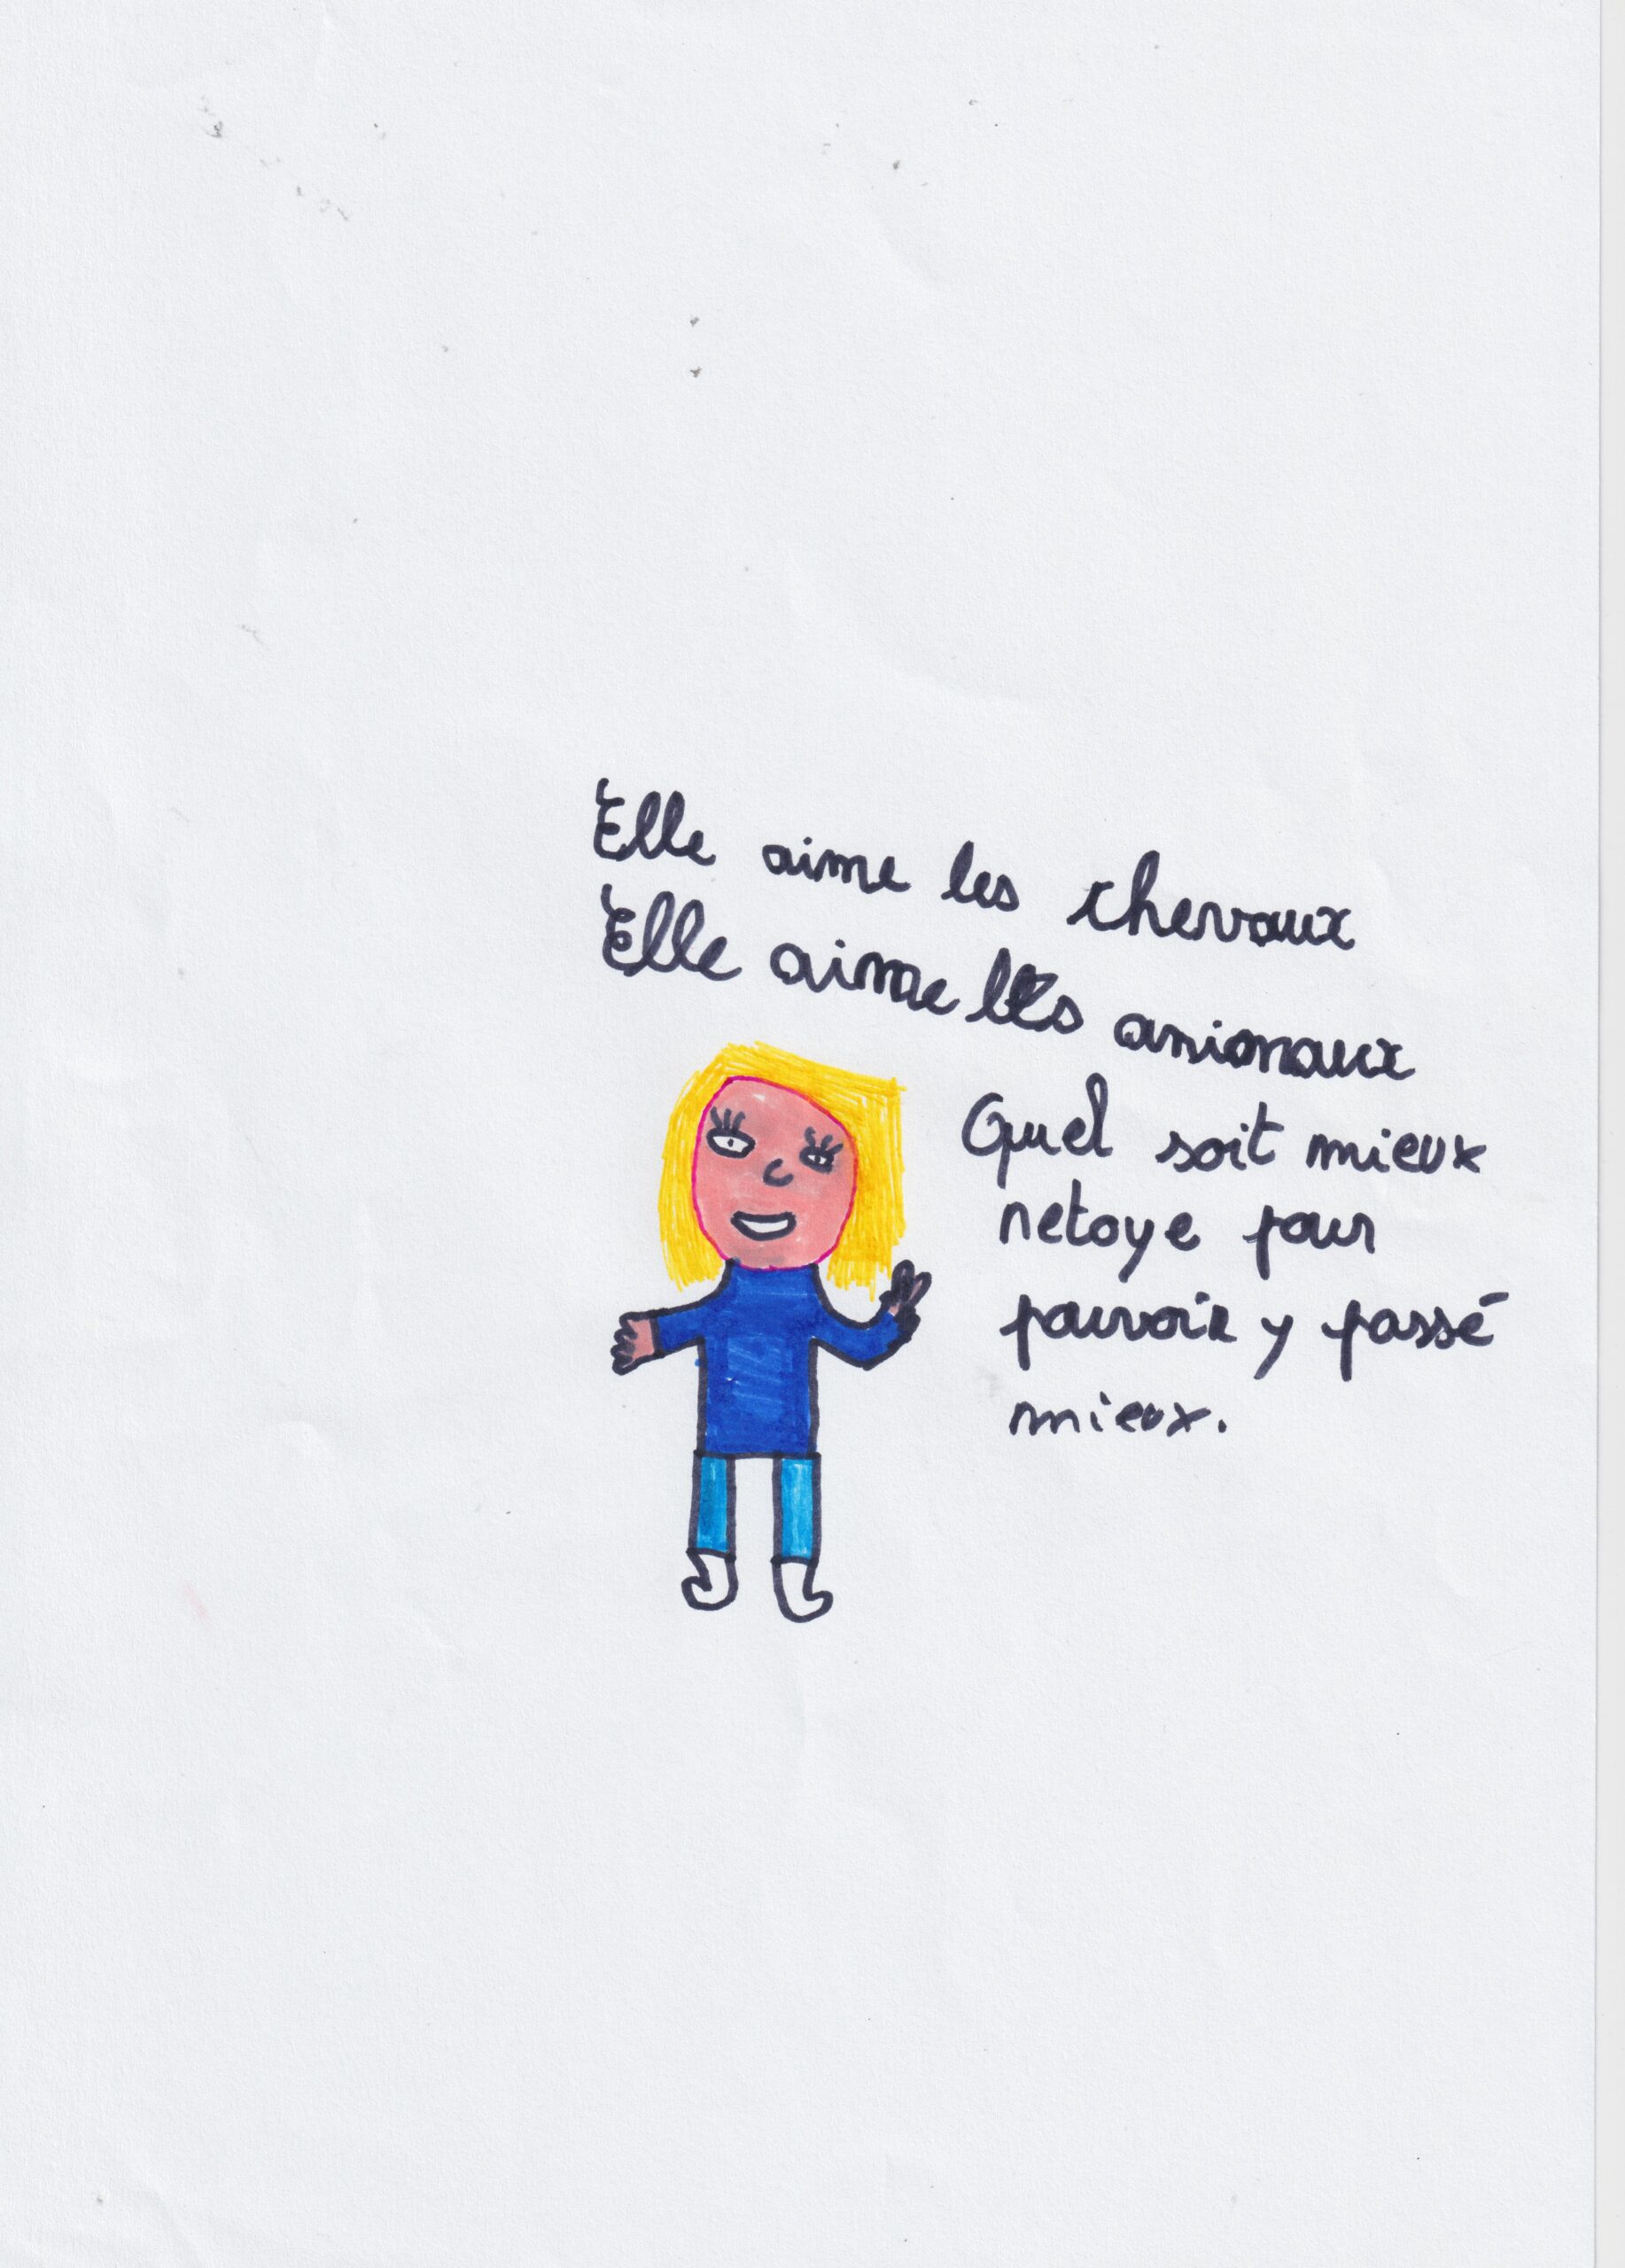 Elle aime les chevaux
Elle aime les animaux
Quel soit mieux
netoye pour
pouvoir y passé
mieux.